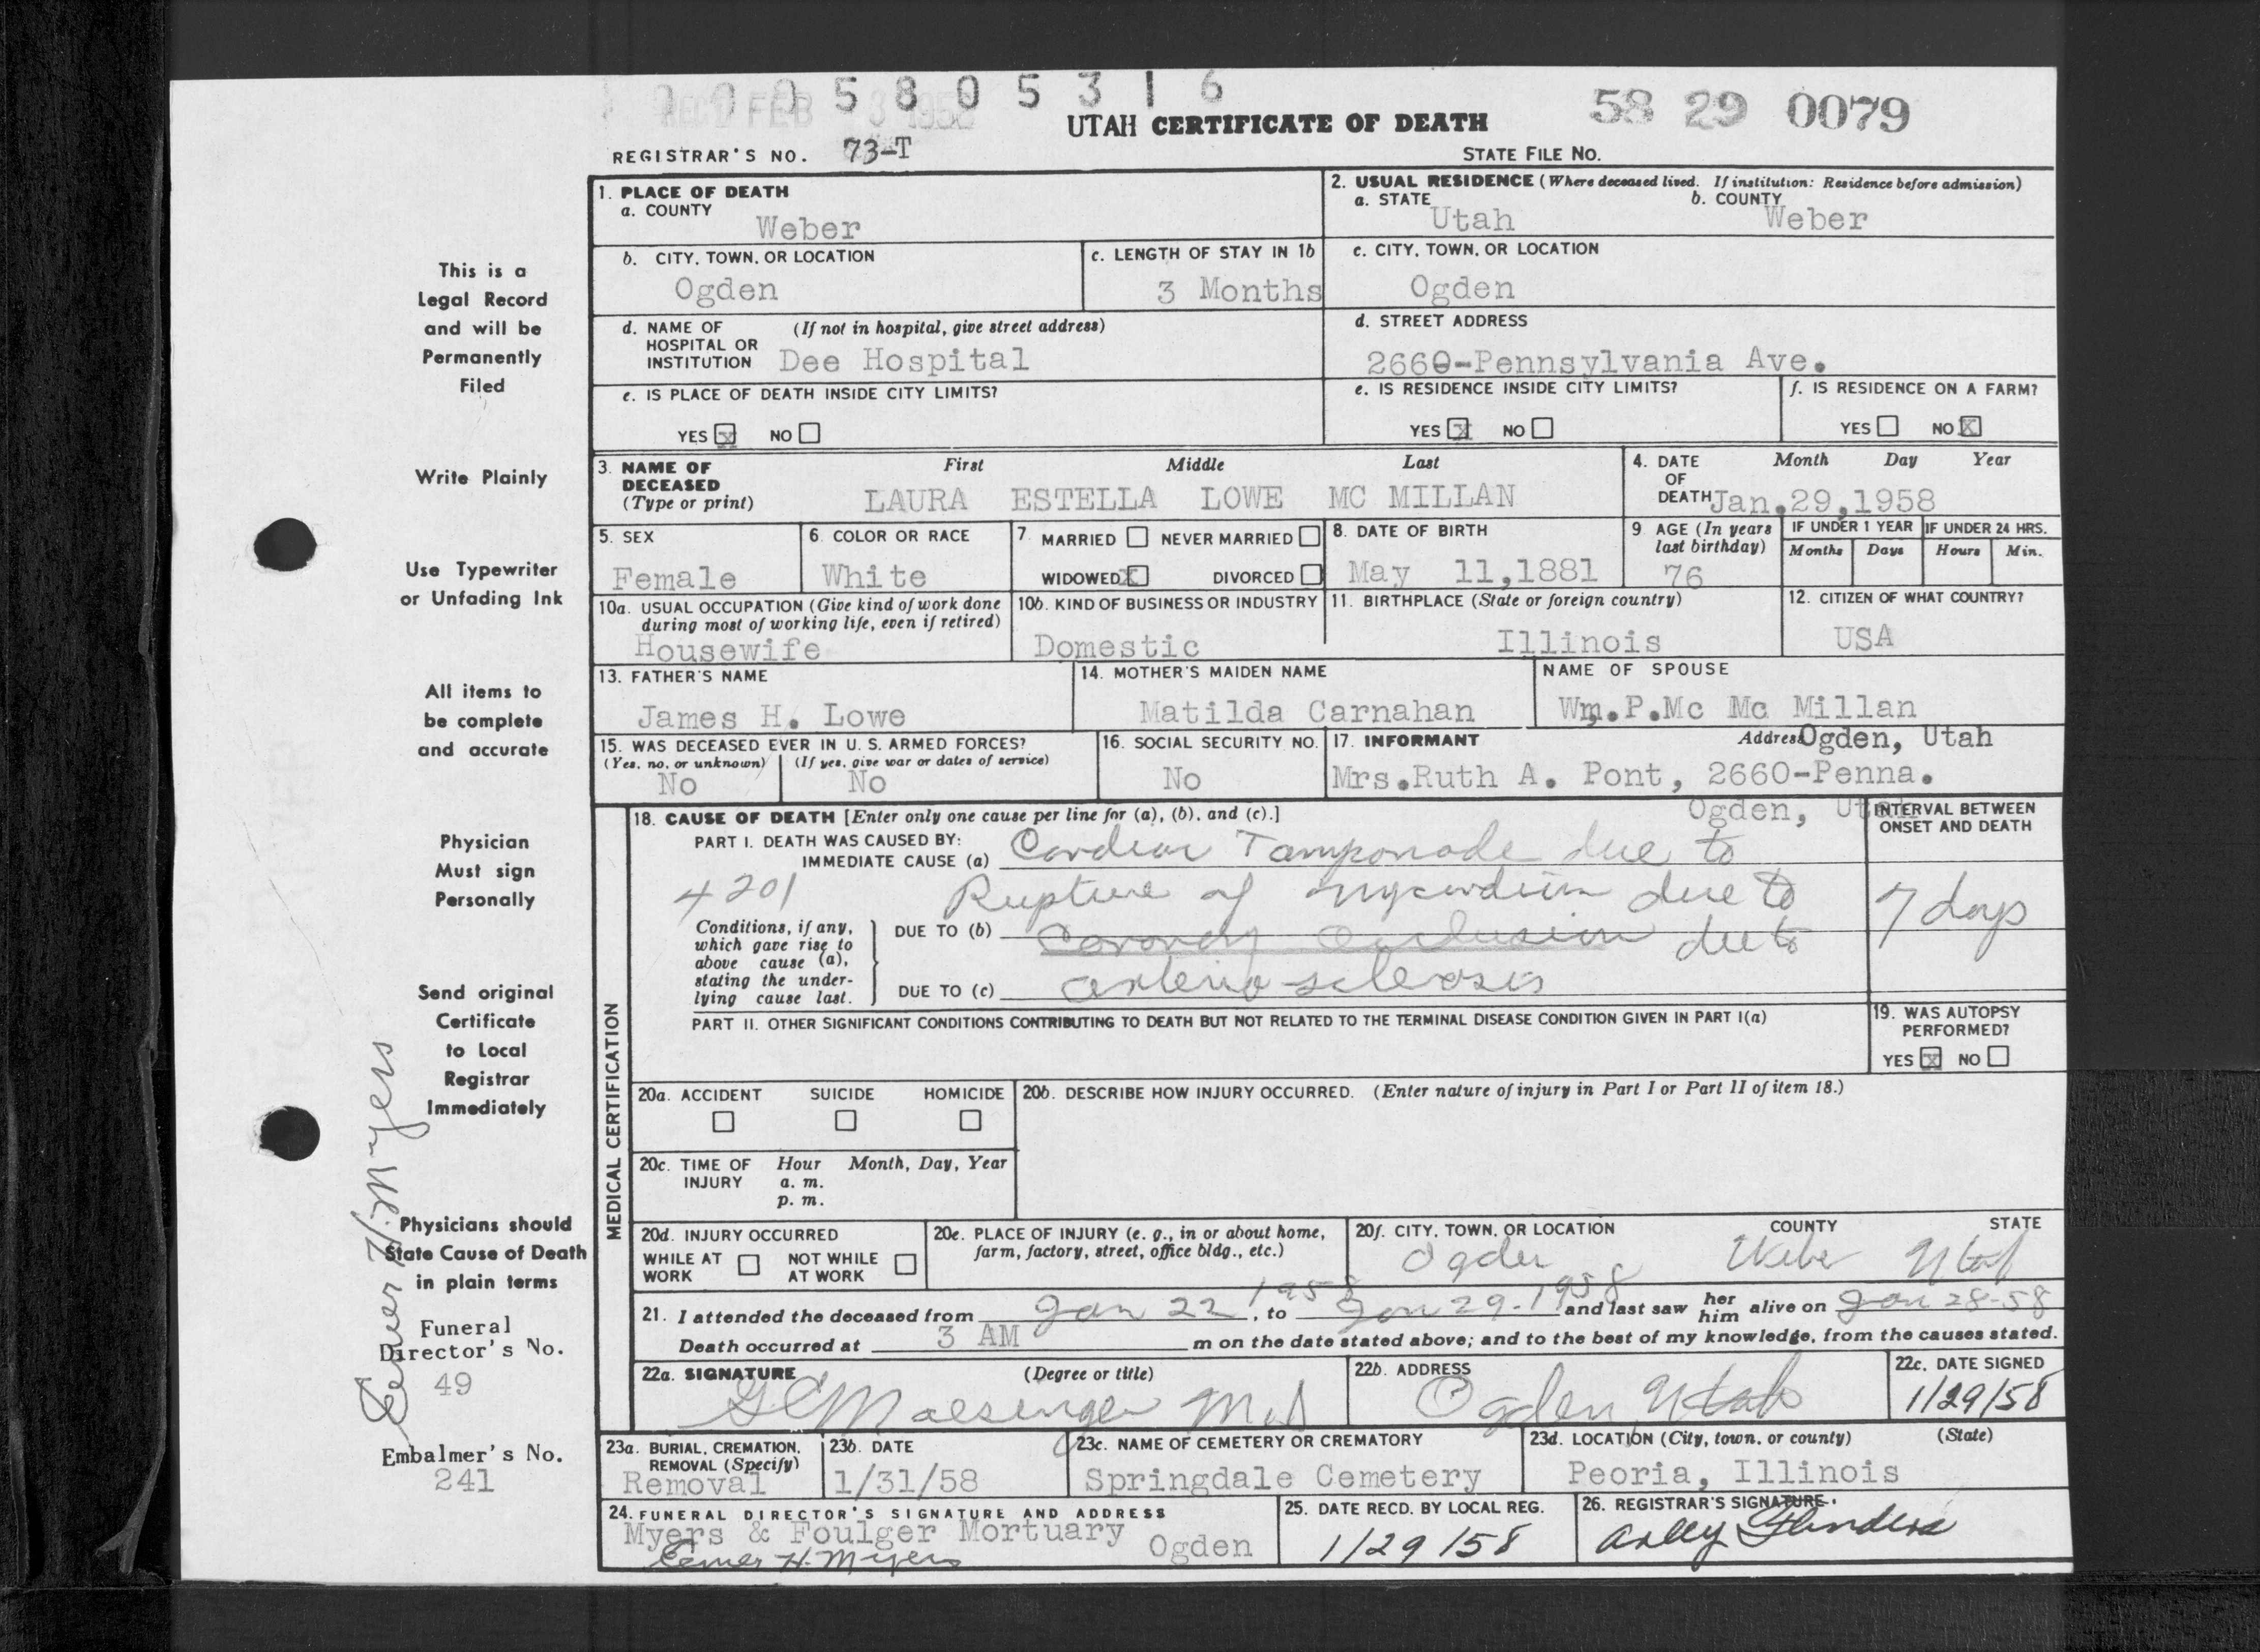 0 0 0 5 8 0 5 3 1 6
REC'D FEB 3 1958
58 29 0079
UTAH CERTIFICATE OF DEATH
REGISTRAR'S NO. 73-T
STATE FILE NO.
1. PLACE OF DEATH
a. COUNTY
Weber
2. USUAL RESIDENCE (Where deceased lived. If institution: Residence before admission)
a. STATE
Utah
b. COUNTY
Weber
b. CITY, TOWN, OR LOCATION
Ogden
c. LENGTH OF STAY IN 1b
3 Months
c. CITY, TOWN, OR LOCATION
Ogden
d. NAME OF (If not in hospital, give street address)
HOSPITAL OR
INSTITUTION Dee Hospital
d. STREET ADDRESS
2660-Pennsylvania Ave.
e. IS PLACE OF DEATH INSIDE CITY LIMITS?
YES X NO
e. IS RESIDENCE INSIDE CITY LIMITS?
YES X NO
f. IS RESIDENCE ON A FARM?
YES NO X
3. NAME OF
DECEASED
(Type or print)
First Middle Last
LAURA ESTELLA LOWE MC MILLAN
4. DATE
OF
DEATH
Month Day Year
Jan.29,1958
5. SEX
Female
6. COLOR OR RACE
White
7. MARRIED NEVER MARRIED
WIDOWED X DIVORCED
8. DATE OF BIRTH
May 11,1881
9 AGE (In years
last birthday)
76
IF UNDER 1 YEAR
Months Days
IF UNDER 24 HRS.
Hours Min.
10a. USUAL OCCUPATION (Give kind of work done
during most of working life, even if retired)
Housewife
10b. KIND OF BUSINESS OR INDUSTRY
Domestic
11. BIRTHPLACE (State or foreign country)
Illinois
12. CITIZEN OF WHAT COUNTRY?
USA
13. FATHER'S NAME
James H. Lowe
14. MOTHER'S MAIDEN NAME
Matilda Carnahan
NAME OF SPOUSE
Wm.P.Mc Mc Millan
15. WAS DECEASED EVER IN U. S. ARMED FORCES?
(Yes, no, or unknown) (If yes, give war or dates of service)
No No
16. SOCIAL SECURITY NO.
No
17. INFORMANT Address Ogden, Utah
Mrs.Ruth A. Pont, 2660-Penna.
Ogden, Utah
18. CAUSE OF DEATH [Enter only one cause per line for (a), (b), and (c).]
INTERVAL BETWEEN
ONSET AND DEATH
PART I. DEATH WAS CAUSED BY:
IMMEDIATE CAUSE (a) Cardiac Tamponade due to
4201 Rupture of myocardium due to
7 days
Conditions, if any,
which gave rise to
above cause (a),
stating the under-
lying cause last.
DUE TO (b) Coronary occlusion due to
DUE TO (c) arterio-sclerosis
PART II. OTHER SIGNIFICANT CONDITIONS CONTRIBUTING TO DEATH BUT NOT RELATED TO THE TERMINAL DISEASE CONDITION GIVEN IN PART I(a)
19. WAS AUTOPSY
PERFORMED?
YES X NO
MEDICAL CERTIFICATION
20a. ACCIDENT SUICIDE HOMICIDE
20b. DESCRIBE HOW INJURY OCCURRED. (Enter nature of injury in Part I or Part II of item 18.)
20c. TIME OF Hour Month, Day, Year
INJURY a. m.
p. m.
20d. INJURY OCCURRED
WHILE AT NOT WHILE
WORK AT WORK
20e. PLACE OF INJURY (e. g., in or about home,
farm, factory, street, office bldg., etc.)
20f. CITY, TOWN, OR LOCATION COUNTY STATE
Ogden Weber Utah
21. I attended the deceased from Jan 22 1958, to Jan 29-1958 and last saw her him alive on Jan 28-58
Death occurred at 3 AM m on the date stated above; and to the best of my knowledge, from the causes stated.
22a. SIGNATURE (Degree or title)
MD
22b. ADDRESS
Ogden Utah
22c. DATE SIGNED
1/29/58
23a. BURIAL, CREMATION,
REMOVAL (Specify)
Removal
23b. DATE
1/31/58
23c. NAME OF CEMETERY OR CREMATORY
Springdale Cemetery
23d. LOCATION (City, town, or county) (State)
Peoria, Illinois
24. FUNERAL DIRECTOR'S SIGNATURE AND ADDRESS
Myers & Foulger Mortuary Ogden
Elmer H. Myers
25. DATE RECD. BY LOCAL REG.
1/29/58
26. REGISTRAR'S SIGNATURE.
Flinders
This is a
Legal Record
and will be
Permanently
Filed
Write Plainly
Use Typewriter
or Unfading Ink
All items to
be complete
and accurate
Physician
Must sign
Personally
Send original
Certificate
to Local
Registrar
Immediately
Physicians should
State Cause of Death
in plain terms
Funeral
Director's No.
49
Embalmer's No.
241
Elmer H. Myers